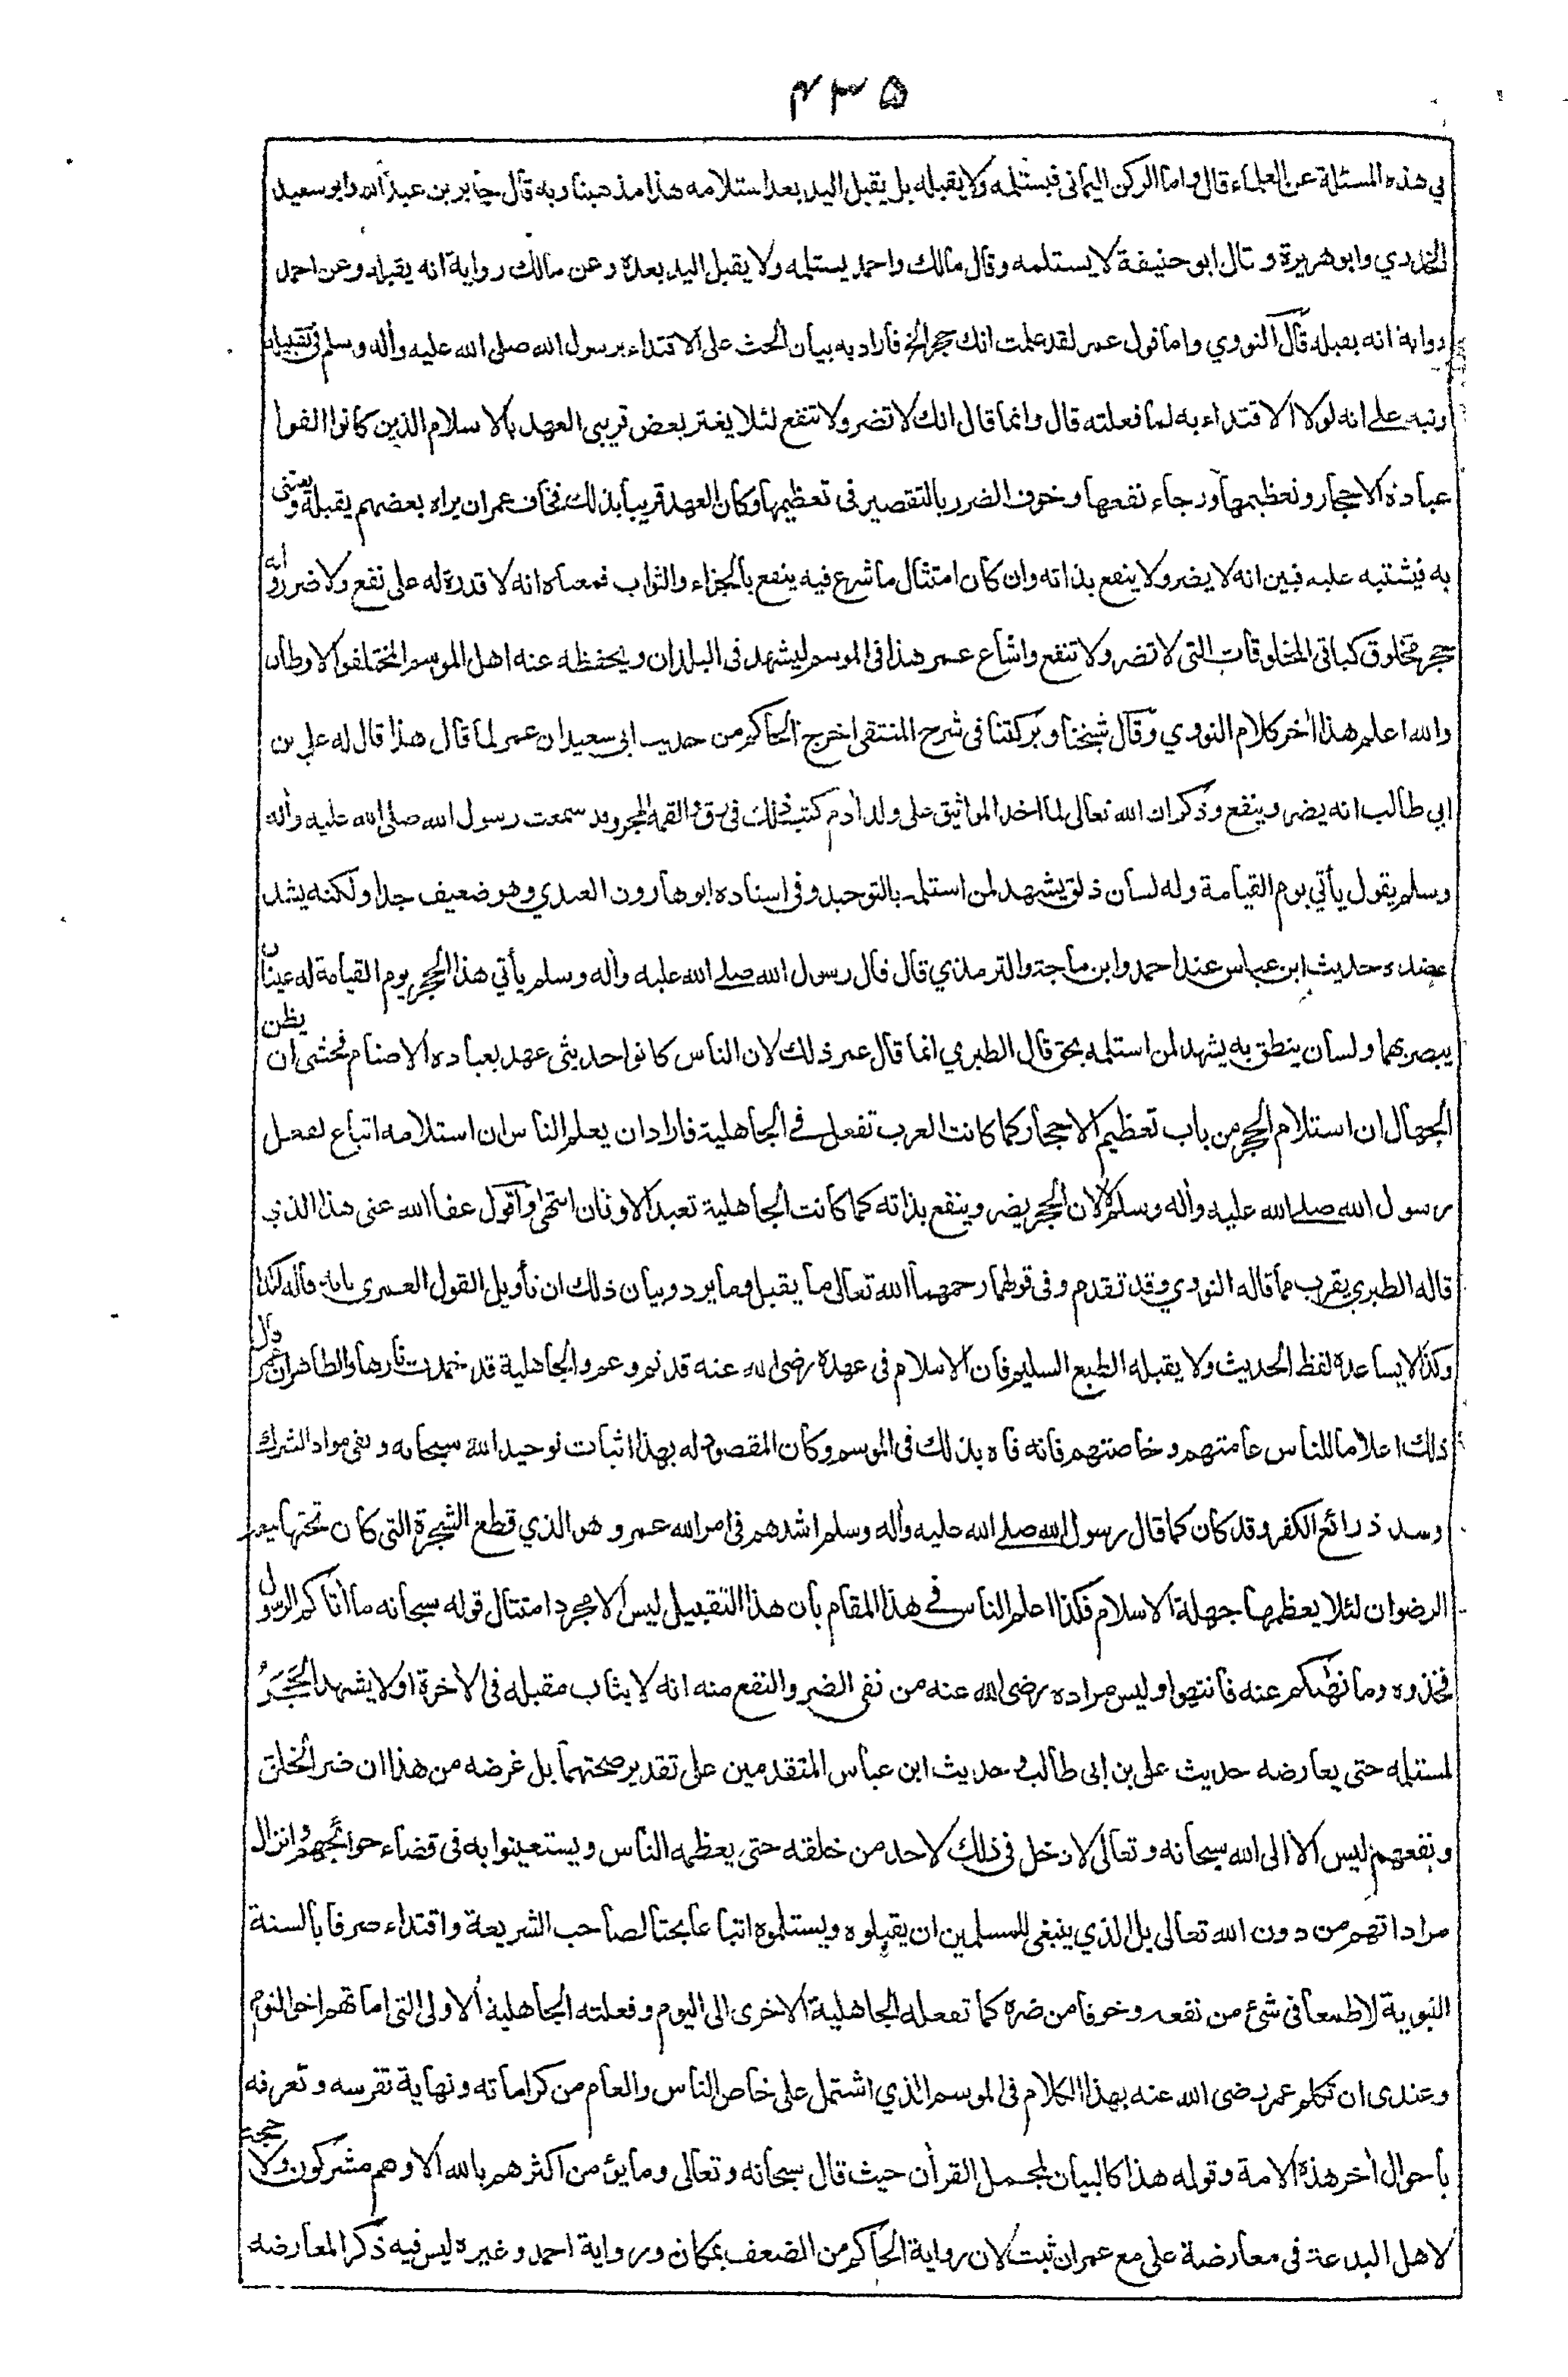 ۴۳۵
في هذه المسئلة عن العلماء قال واما الركن اليماني فيستلمه ولا يقبله بل يقبل اليد بعد استلامه هذا مذهبنا وبه قال جابر بن عبد الله وابو سعيد
الخدري وابو هريرة وقال ابو حنيفة لا يستلمه وقال مالك واحمد يستلمه ولا يقبل اليد بعده وعن مالك رواية انه يقبله وعن احمد
رواية انه يقبله قال النووي واما قول عمر لقد علمت انك حجر الخ فاراد به بيان الحث على الاقتداء برسول الله صلى الله عليه وأله وسلم في تقبيله
ونبه على انه لولا الاقتداء به لما فعلته قال وانما قال انك لا تضر ولا تنفع لئلا يغتر بعض قريبى العهد بالاسلام الذين كانوا الفوا
عبادة الاحجار وتعظيمها ورجاء نفعها وخوف الضرر بالتقصير فى تعظيمها وكان العهد قريبا بذلك فخاف عمر ان يراه بعضهم يقبله ويعتنى
به فيشتبه عليه فبين انه لا يضر ولا ينفع بذاته وان كان امتثال ما شرع فيه ينفع بالجزاء والثواب فمعناه انه لا قدرة له على نفع ولا ضر وانه
حجر مخلوق كباقى المخلوقات التى لا تضر ولا تنفع واشاع عمر هذا فى الموسم ليشهد فى البلدان ويحفظه عنه اهل الموسم المختلفوا الاوطان
والله اعلم هذا أخر كلام النووي وقال شيخنا وبركتنا فى شرح المنتقى اخرج الحاكم من حديث ابى سعيد ان عمر لما قال هذا قال له علي بن
ابي طالب انه يضر وينفع وذكر ان الله تعالى لما اخذ المواثيق على ولد أدم كتب ذلك فى رق والقمه الحجر وقد سمعت رسول الله صلى الله عليه وأله
وسلم يقول يأتي يوم القيامة وله لسان ذلق يشهد لمن استلمه بالتوحيد وفى اسناده ابو هارون العبدي وهو ضعيف جدا ولكنه يشد
عضده حديث ابن عباس عند احمد وابن ماجة والترمذي قال قال رسول الله صلى الله عليه وأله وسلم يأتي هذا الحجر يوم القيامة له عينان
يبصر بهما ولسان ينطق به يشهد لمن استلمه بحق قال الطبري انما قال عمر ذلك لان الناس كانوا حديثى عهد بعبادة الاصنام فخشى ان يظن
الجهال ان استلام الحجر من باب تعظيم الاحجار كما كانت العرب تفعل في الجاهلية فاراد ان يعلم الناس ان استلامه اتباع لفعل
رسول الله صلى الله عليه وأله وسلم لا لان الحجر يضر وينفع بذاته كما كانت الجاهلية تعبد الاوثان انتهى واقول عفا الله عنى هذا الذي
قاله الطبري يقرب مما قاله النووي وقد تقدم وفى قولهما رحمهما الله تعالى ما يقبل وما يرد وبيان ذلك ان تأويل القول العمرى بانه قاله كذا
وكذا لا يساعده لفظ الحديث ولا يقبله الطبع السليم فان الاسلام فى عهده رضى الله عنه قد نمو وعم والجاهلية قد خمدت نارها والظاهر ان عمر قال
ذلك اعلاما للناس عامتهم وخاصتهم فانه فاه بذلك فى الموسم وكان المقصود له بهذا اثبات توحيد الله سبحانه ونفى مواد الشرك
وسد ذرائع الكفر وقد كان كما قال رسول الله صلى الله عليه وأله وسلم اشدهم فى امر الله عمر وهو الذي قطع الشجرة التى كان تحتها بيعة
الرضوان لئلا يعظمها جهلة الاسلام فكذا اعلم الناس في هذا المقام بأن هذا التقبيل ليس الا مجرد امتثال قوله سبحانه ما أتاكم الرسول
فخذوه وما نهاكم عنه فانتهوا وليس مراده رضى الله عنه من نفى الضر والنفع منه انه لا يثاب مقبله فى الأخرة او لا يشهد الحَجَرُ
لمستلمه حتى يعارضه حديث على بن ابى طالب وحديث ابن عباس المتقدمين على تقدير صحتهما بل غرضه من هذا ان ضر الخلق
ونفعهم ليس الا الى الله سبحانه وتعالى لا دخل فى ذلك لاحد من خلقه حتى يعظمه الناس ويستعينوا به فى قضاء حوائجهم وانزال
مراداتهم من دون الله تعالى بل الذي ينبغى للمسلمين ان يقبلوه ويستلموه اتباعا بحتا لصاحب الشريعة واقتداء صرفا بالسنة
النبوية لا طمعا فى شئ من نفعه وخوفا من ضره كما تفعله الجاهلية الاخرى الى اليوم وفعلته الجاهلية الاولى التى اماتهم اخو النوم
وعندى ان تكلم عمر رضى الله عنه بهذا الكلام فى الموسم الذي اشتمل على خاص الناس والعام من كراماته ونهاية تفرسه وتعرفه
بأحوال أخر هذه الامة وقوله هذا كالبيان لمجمل القرأن حيث قال سبحانه وتعالى وما يؤمن اكثرهم بالله الا وهم مشركون ولا حجة
لاهل البدعة فى معارضة على مع عمر ان ثبت لان رواية الحاكم من الضعف بمكان ورواية احمد وغيره ليس فيه ذكر المعارضه